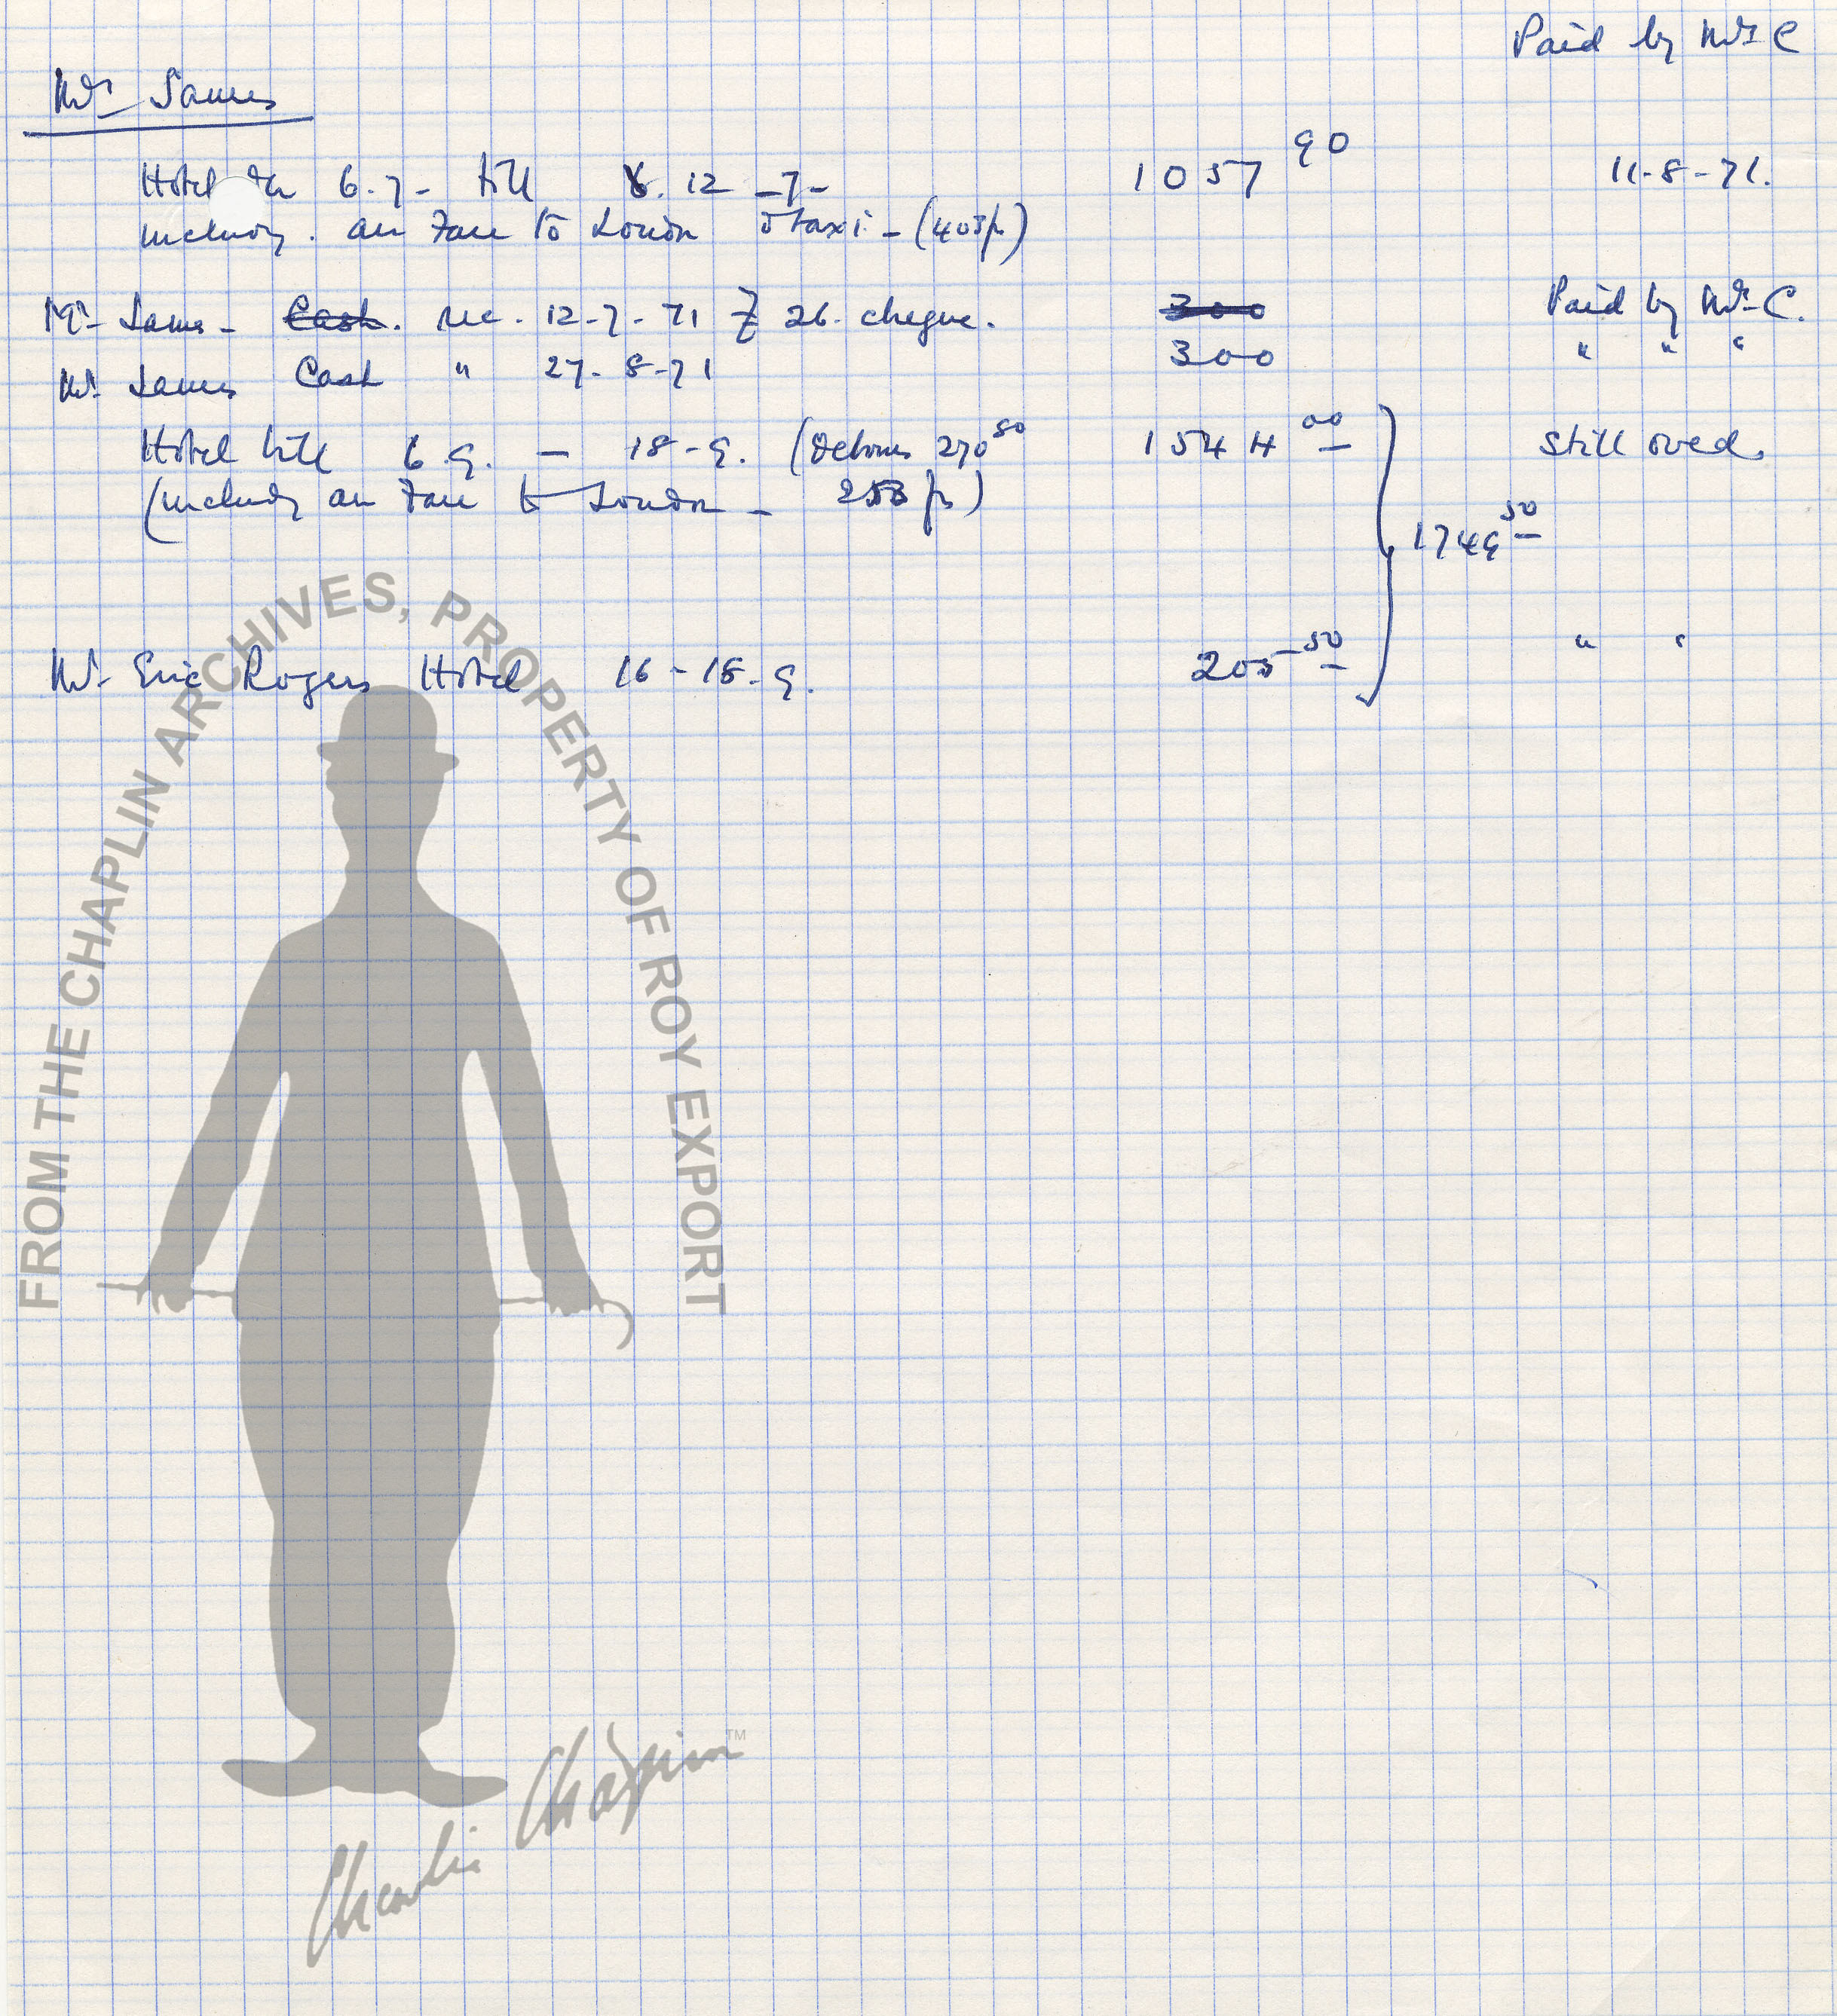 Paid by Mr C
Mr James
Hotel 6.7- till 8. 12 -7- 1057 90 11-8-71.
includg. air Fare to London & taxi - (405fr)
Mr James - Cash. rec. 12-7-71 £ 26. cheque. 300 Paid by Mr C.
Mr James Cash " 27-8-71 300 " " "
Hotel bill 6.9. - 18-9. (Debours 270 80 1544 00 Still owed.
(includg air Fare to London - 253 fr)
1749 50
Mr Eric Rogers Hotel 16-18-9. 205 50 " "
FROM THE CHAPLIN ARCHIVES, PROPERTY OF ROY EXPORT
Charlie Chaplin TM